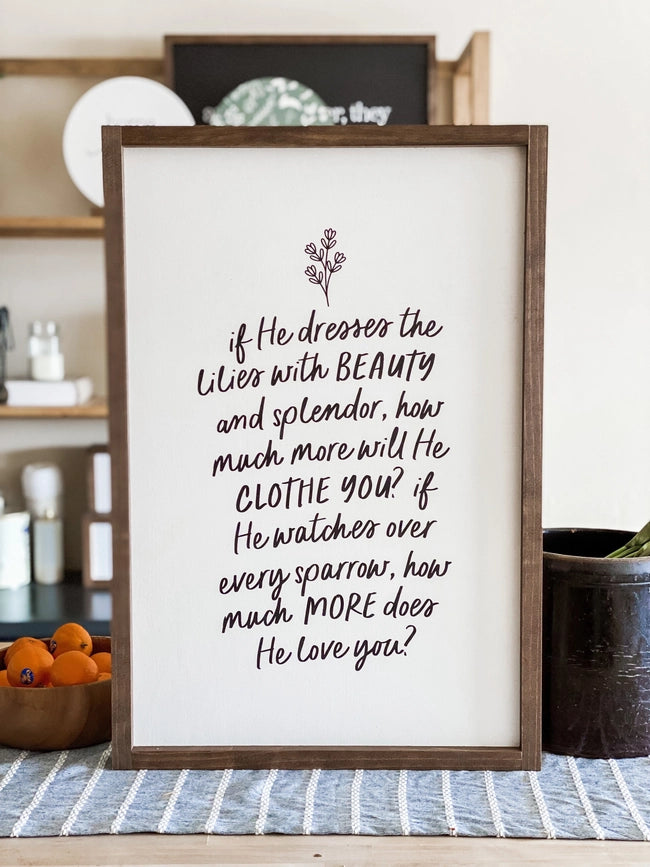 er, they
if He dresses the
lilies with BEAUTY
and splendor, how
much more will He
CLOTHE YOU? if
He watches over
every sparrow, how
much MORE does
He love you?